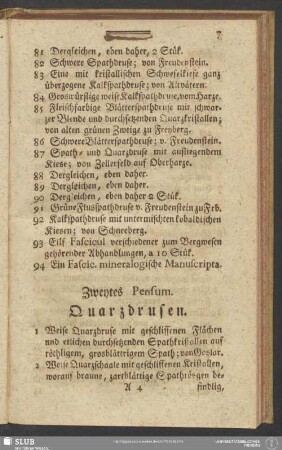 7
81 Dergleichen, eben daher, 2 Stük.
82 Schwere Spathdruse; von Freudenstein.
83 Eine mit kristallischen Schwefelkiese ganz
überzogene Kalkspathdruse; von Altvätern.
84 Groswürflige weise Kalkspathdruse, vom Harze.
85 Fleischfarbige Blätterspathdruse mit schwar-
zer Blende und durchsetzenden Quarzkristallen;
von alten grünen Zweige zu Freyberg.
86 Schwere Blätterspathdruse; v. Freudenstein.
87 Spath- und Quarzdruse mit aufliegendem
Kiese; von Zellerfeld auf Oberharze.
88 Dergleichen, eben daher.
89 Dergleichen, eben daher.
90 Dergleichen, eben daher 2 Stük.
91 Grüne Flusspathdruse v. Freudenstein zu Frb.
92 Kalkspathdruse mit untermischten kobaldischen
Kiesen; von Schneeberg.
93 Eilf Fascicul verschiedener zum Bergwesen
gehörender Abhandlungen, a 10 Stük.
94 Ein Fascic. mineralogische Manuscripta.
Zweytes Pensum.
Quarzdrusen.
1 Weise Quarzdruse mit geschliffenen Flächen
und etlichen durchsetzenden Spathkristallen auf
röthligem, grosblättrigem Spath; von Goslar.
2 Weise Quarzschaale mit geschliffenen Kristallen,
worauf braune, zartblättige Spathrösgen be-
A 4
findlig,
SLUB